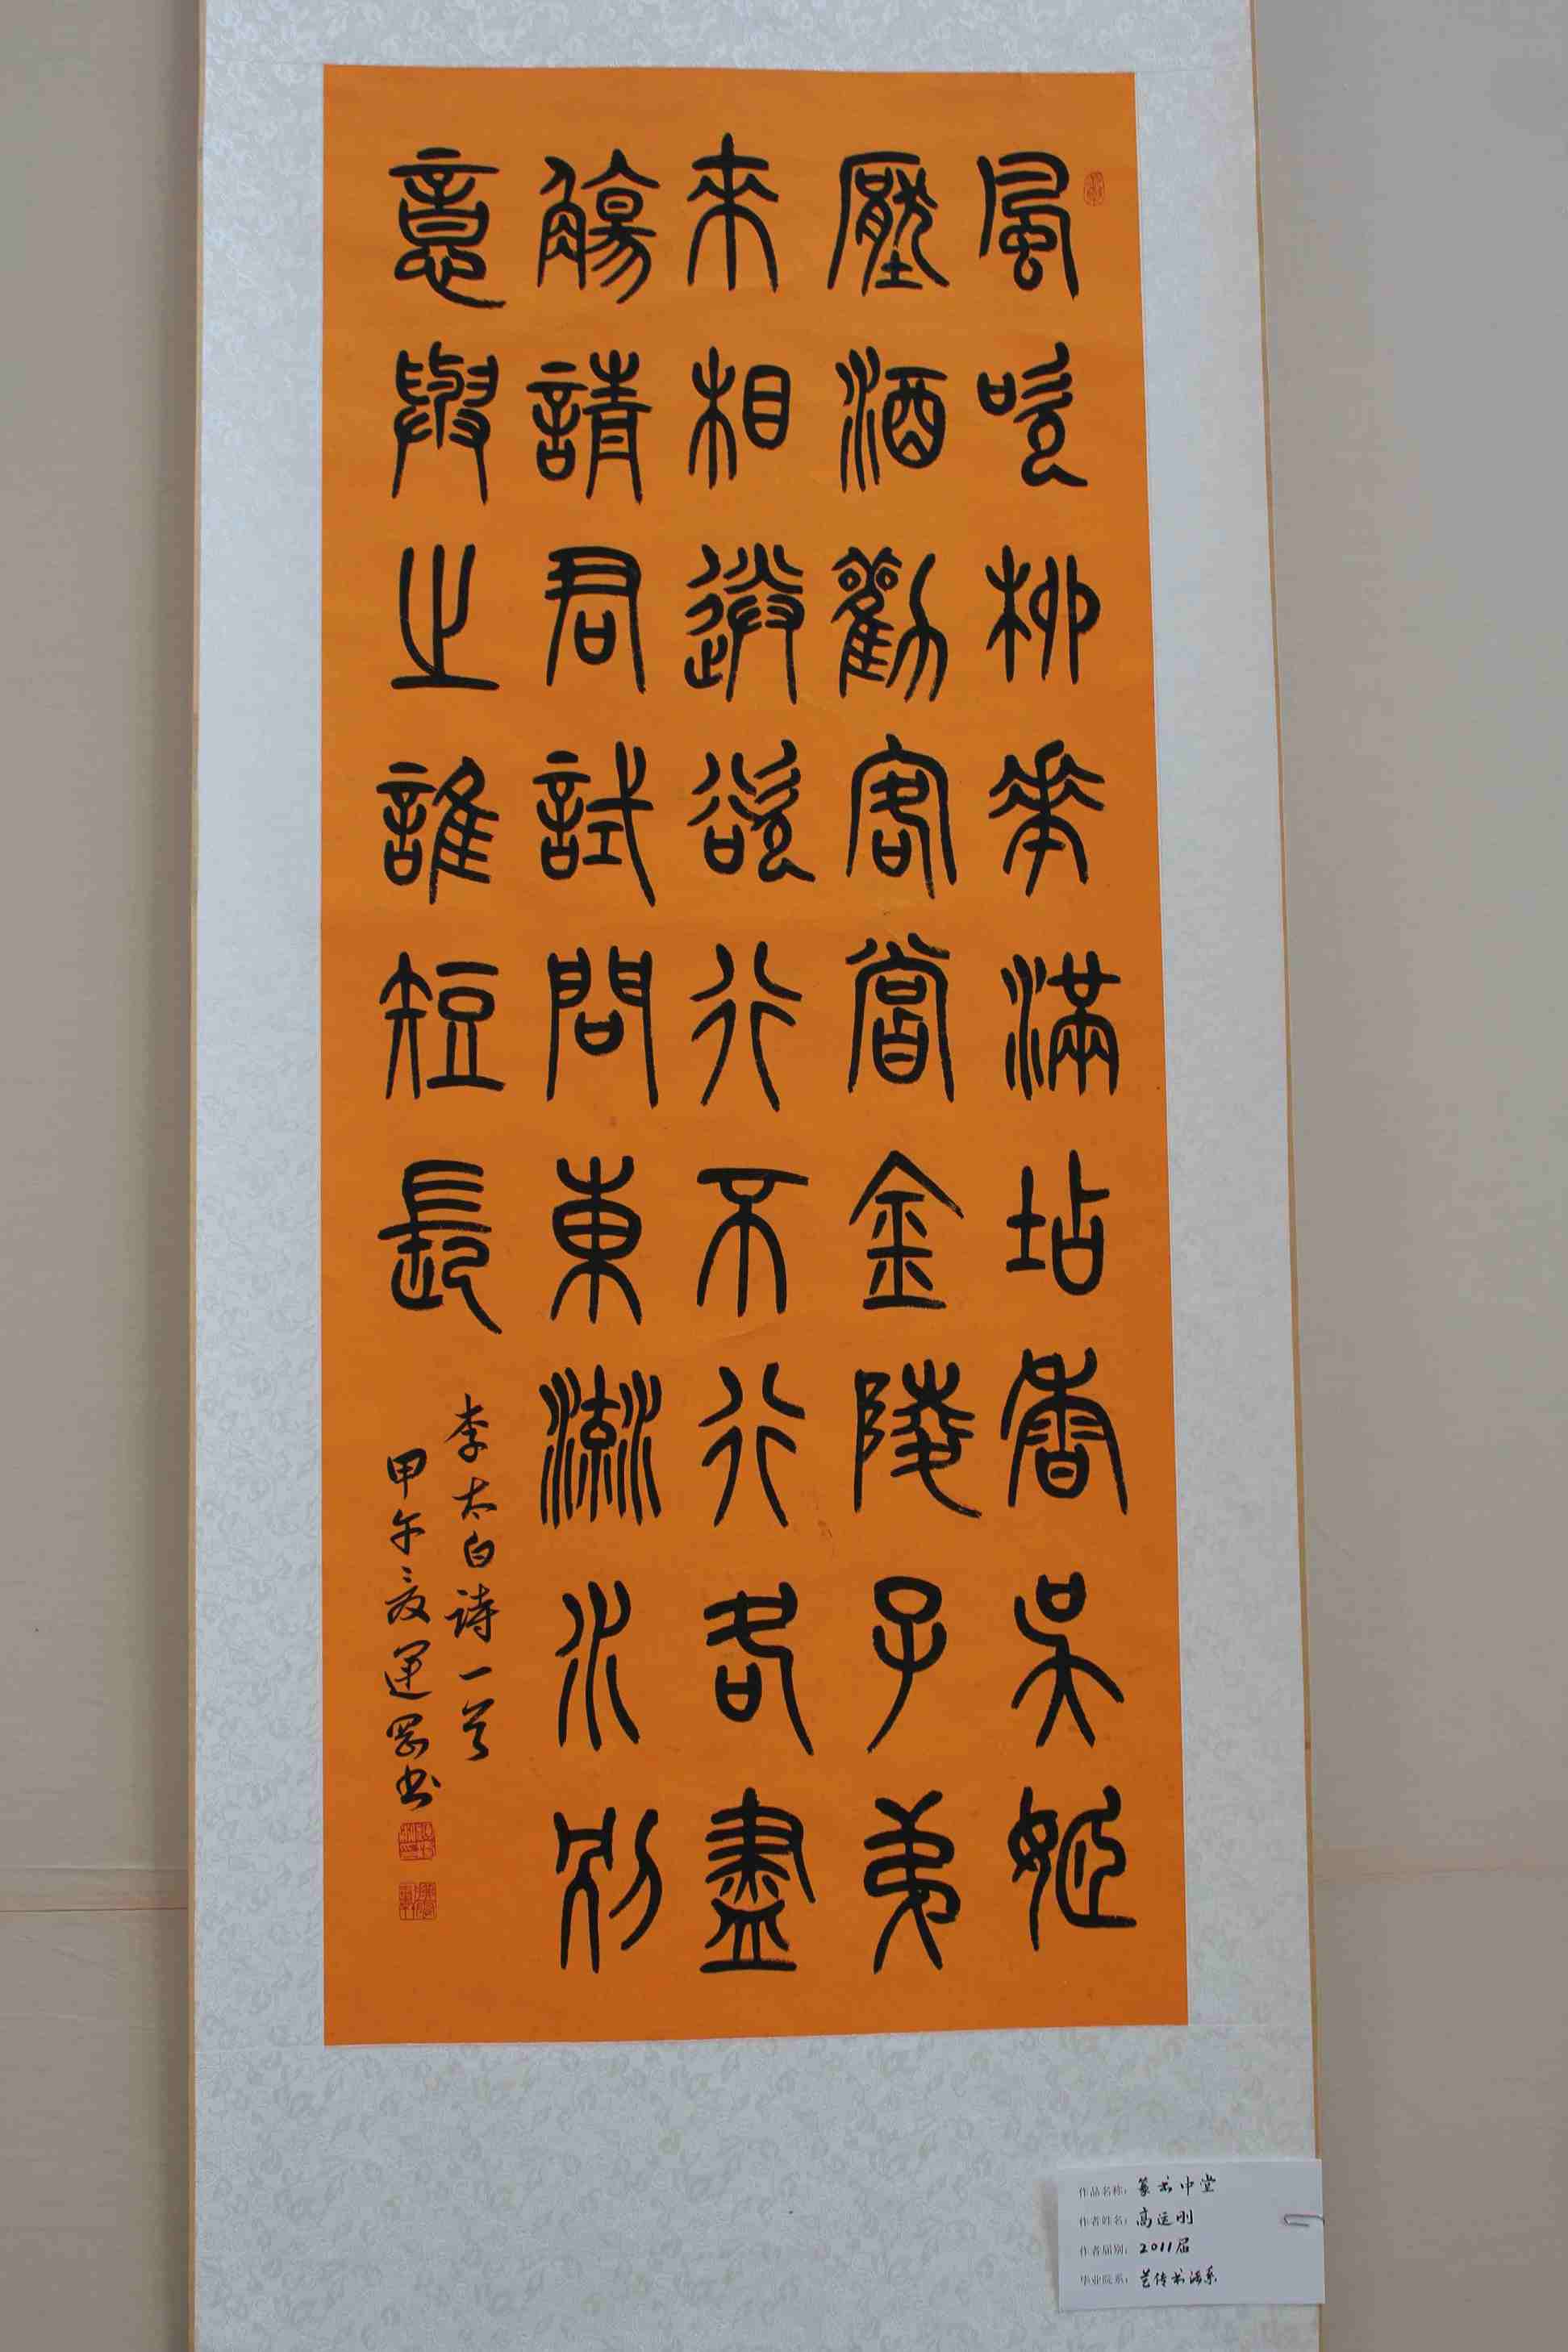 風吹柳華滿坫香吳姬
壓酒勸客嘗金陵子弟
來相送欲行不行各盡
觴請君試問東流水別
意與之誰短長
李太白诗一首
甲午夏運罡书
作品名称：篆书中堂
作者姓名：高运刚
作者届别：2011届
毕业院系：艺传书法系